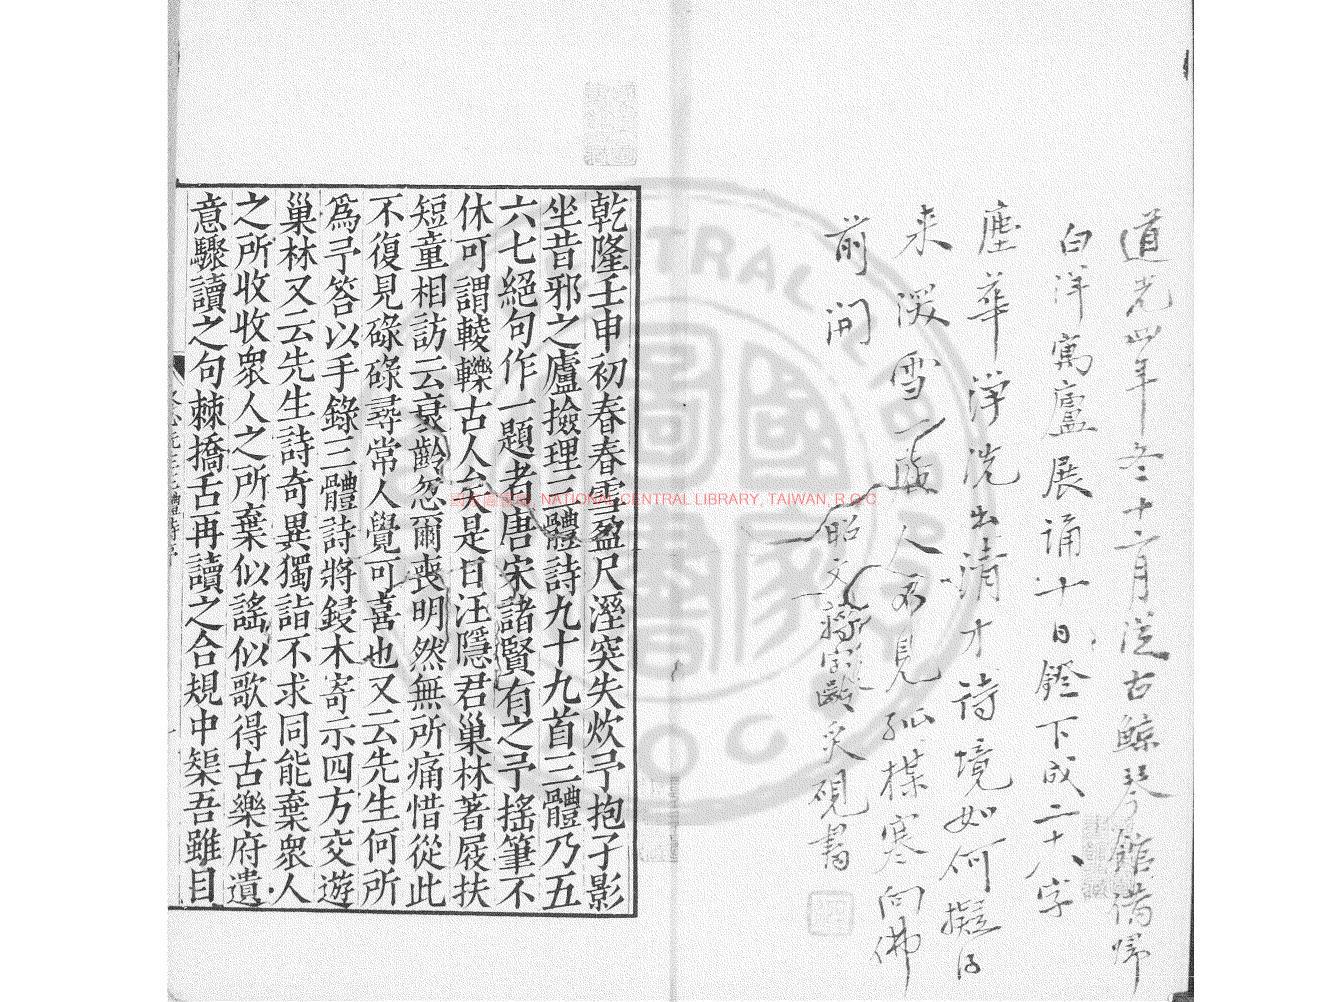 道光四年冬十一月從古鯨琴館攜歸
白洋寓廬展誦十日鐙下成二十八字
塵華淨洗出清才詩境如何擬得
來深雪一函人不見孤楳寒向佛
前開
昭文蔣寶齡炙硯書
乾隆壬申初春春雪盈尺溼突失炊予抱孑影
坐昔邪之廬撿理三體詩九十九首三體乃五
六七絕句作一題者唐宋諸賢有之予搖筆不
休可謂輘轢古人矣是日汪隱君巢林著屐扶
短童相訪云衰齡忽爾喪明然無所痛惜從此
不復見碌碌尋常人覺可喜也又云先生何所
爲予答以手錄三體詩將鋟木寄示四方交遊
巢林又云先生詩奇異獨詣不求同能棄衆人
之所收收衆人之所棄似謠似歌得古樂府遺
意驟讀之句棘撟舌再讀之合規中榘吾雖目
國家圖書館, NATIONAL CENTRAL LIBRARY, TAIWAN, R.O.C